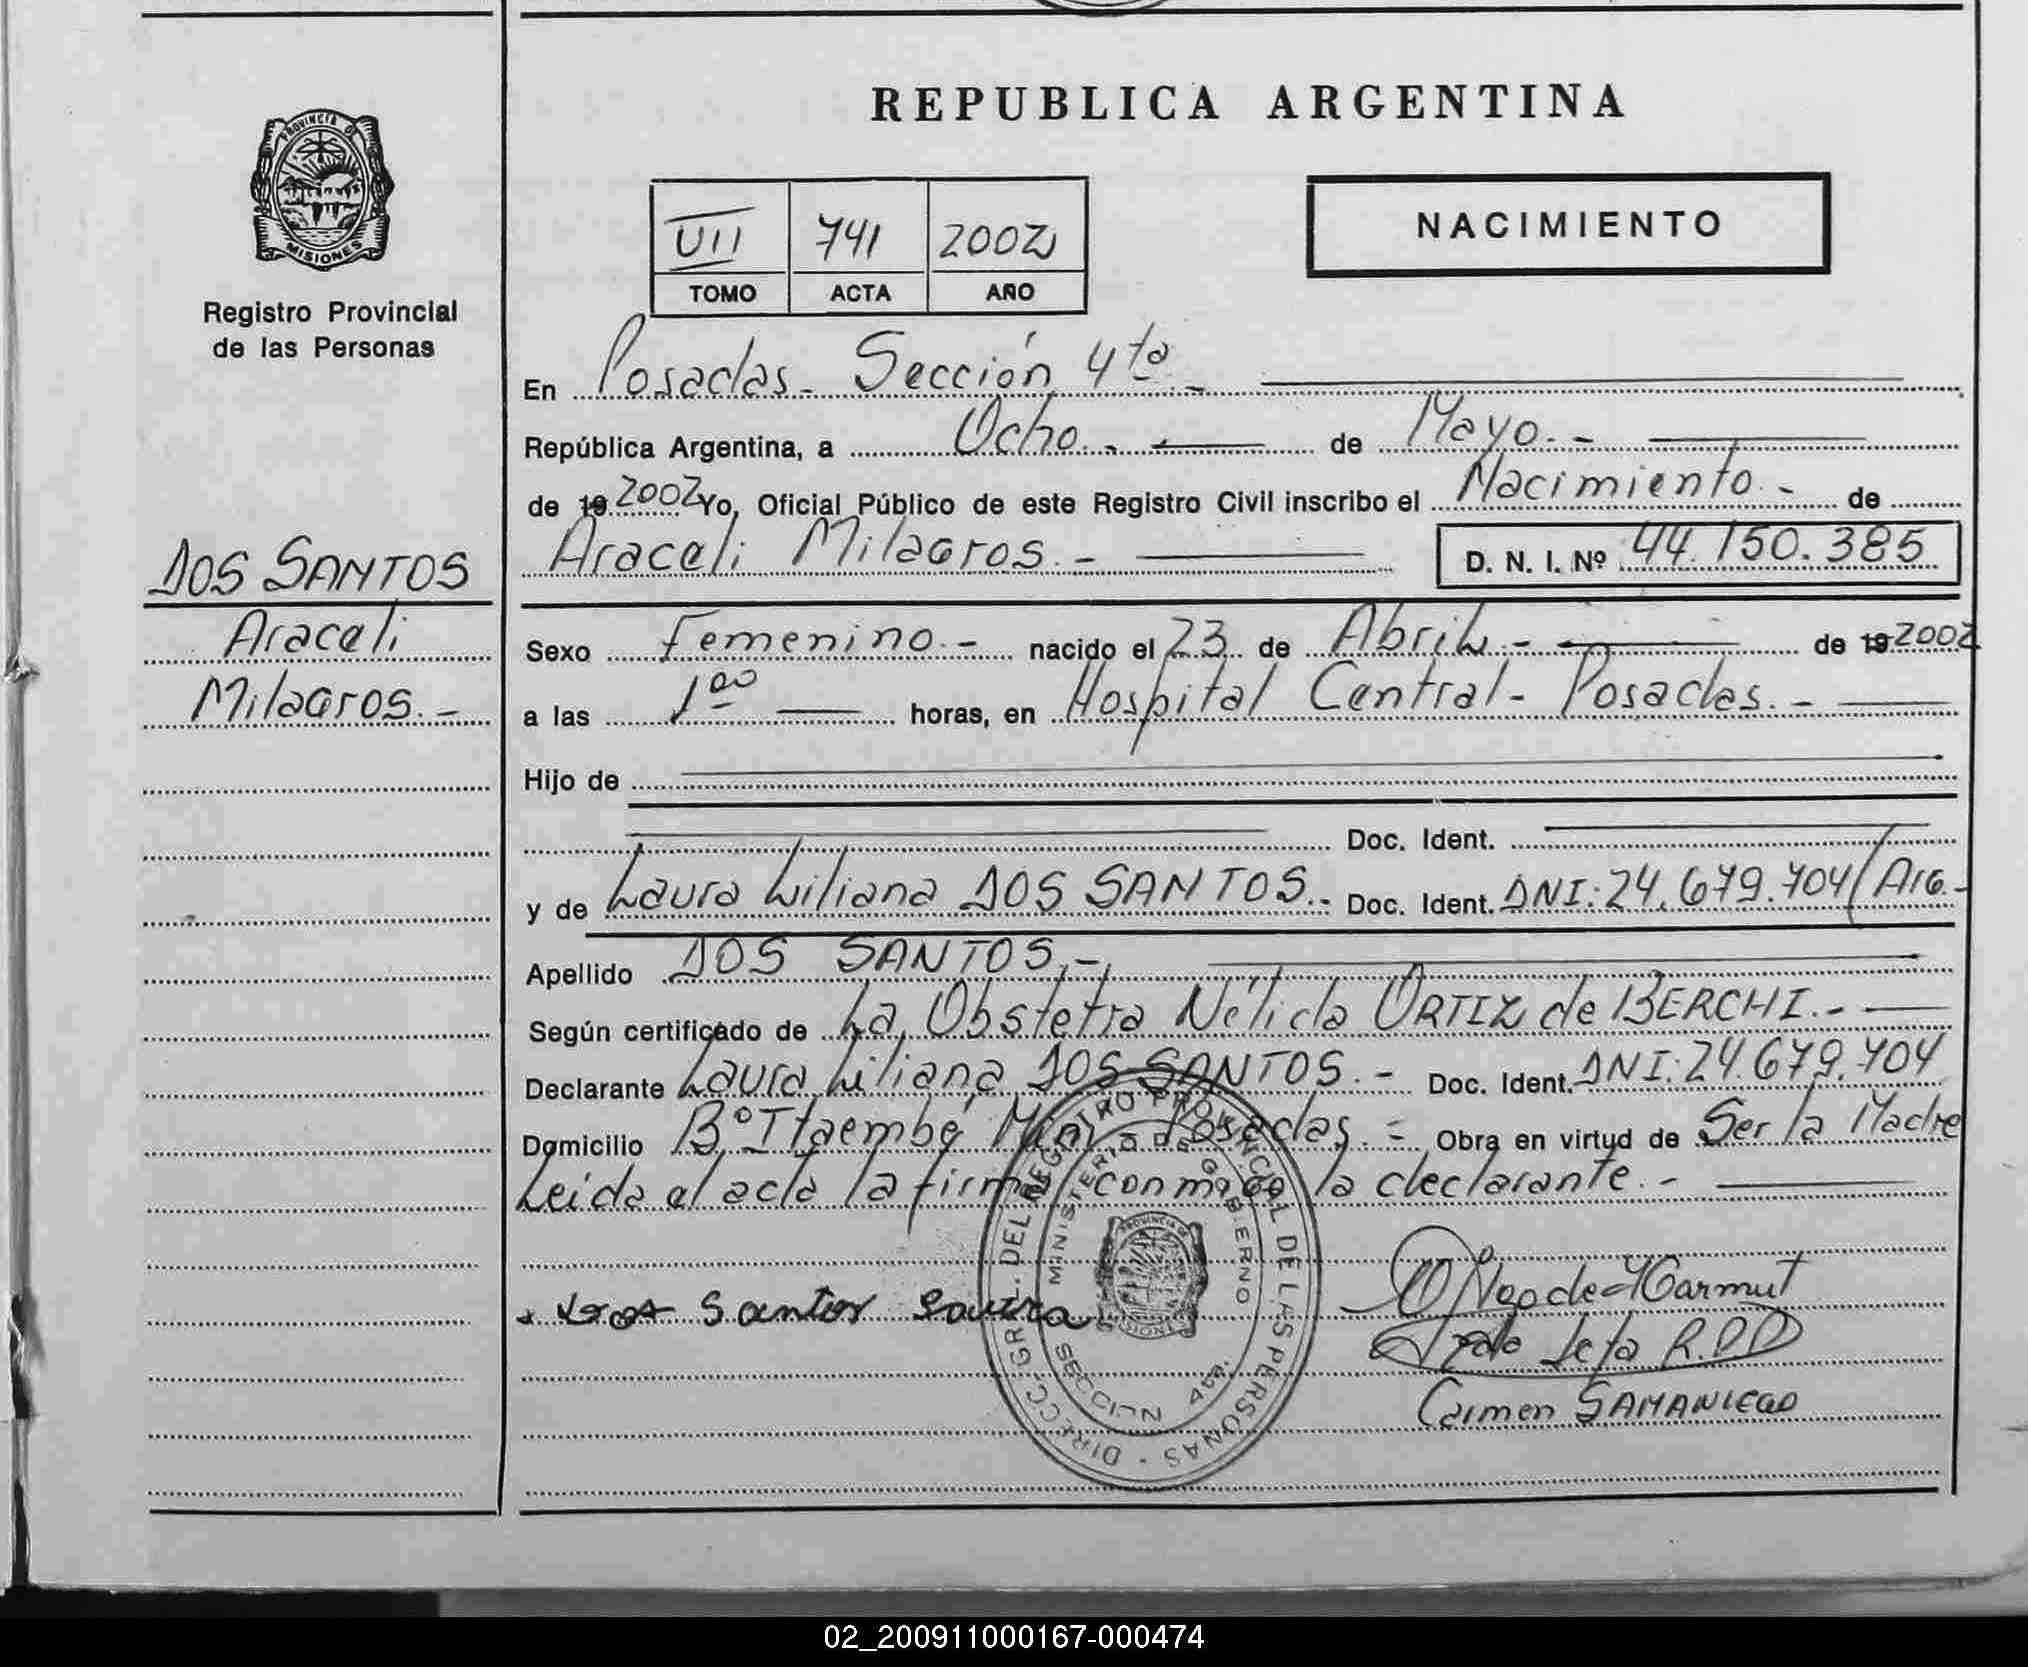 REPUBLICA ARGENTINA
PROVINCIA DE
MISIONES
Registro Provincial
de las Personas
VII 741 2002
TOMO ACTA AÑO
NACIMIENTO
En Posadas - Sección 4ta. -
República Argentina, a Ocho. - de Mayo. -
de 19 2002 Yo, Oficial Público de este Registro Civil inscribo el Nacimiento. - de
Araceli Milagros. - D. N. I. Nº 44.150.385
DOS SANTOS
Araceli
Milagros. -
Sexo Femenino. - nacido el 23 de Abril. - de 19 2002
a las 1 00 horas, en Hospital Central - Posadas. -
Hijo de
Doc. Ident.
y de Laura Liliana DOS SANTOS. - Doc. Ident. DNI: 24.679.704/Arg. -
Apellido DOS SANTOS. -
Según certificado de La Obstetra Nélida ORTIZ de BERCHI. -
Declarante Laura Liliana DOS SANTOS. - Doc. Ident. DNI: 24.679.704
Domicilio Bº Itaembé Miní - Posadas. - Obra en virtud de Ser la Madre
Leida el acta la firma conmigo la declarante. -
Dos Santos Laura
DIRECC. GRL. DEL REGISTRO PROVINCIAL DE LAS PERSONAS
MINISTERIO DE GOBIERNO
SECCION 4ta.
PROVINCIA DE
MISIONES
Jefa R.P.P
Carmen SAMANIEGO
02_200911000167-000474